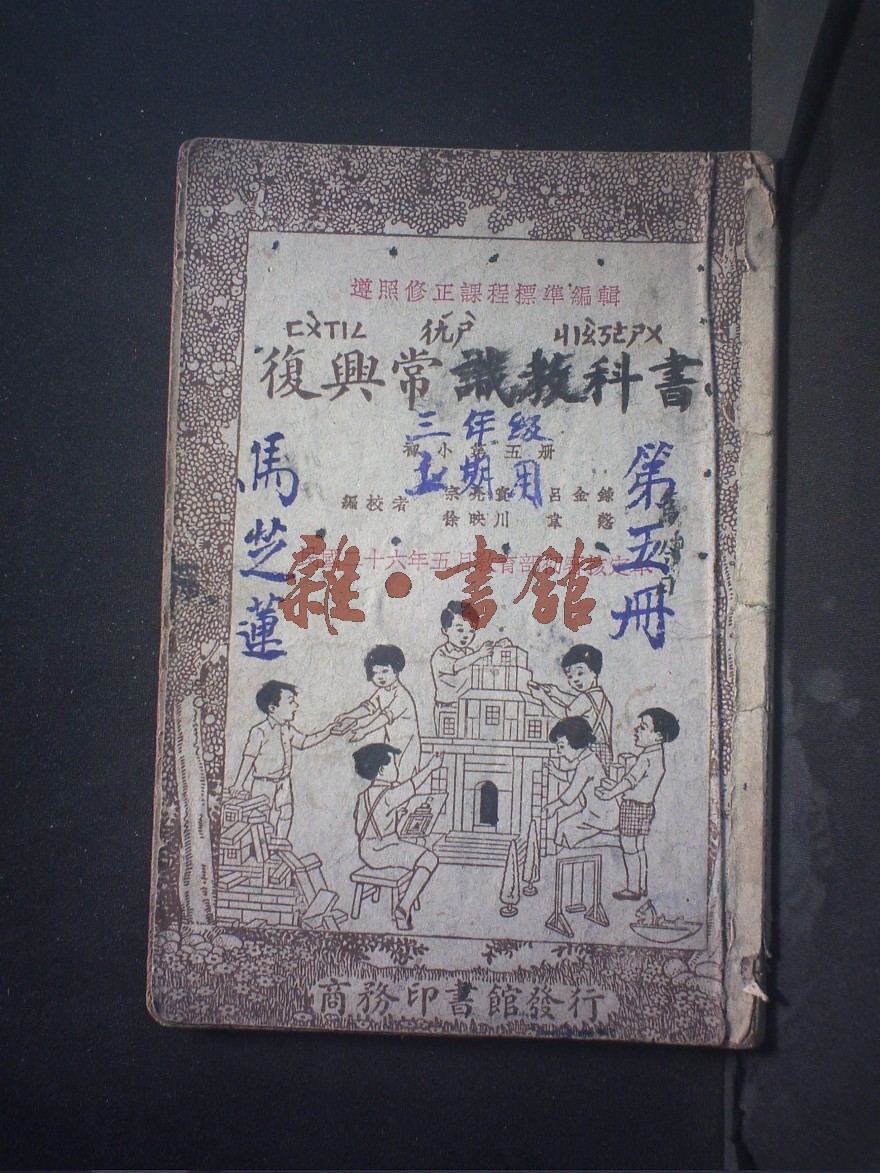 遵照修正課程標準編輯
ㄈㄨˋㄒㄧㄥ ㄔㄤˊㄕˋ ㄐㄧㄠˋㄎㄜㄕㄨ
復興常識教科書
三年級
初小第五册
上期用
編校者 宗亮寰 呂金錄
徐映川 韋愨
第五冊
馬芝蓮
十六年五月教育部
核定本
雜·書館
商務印書館發行